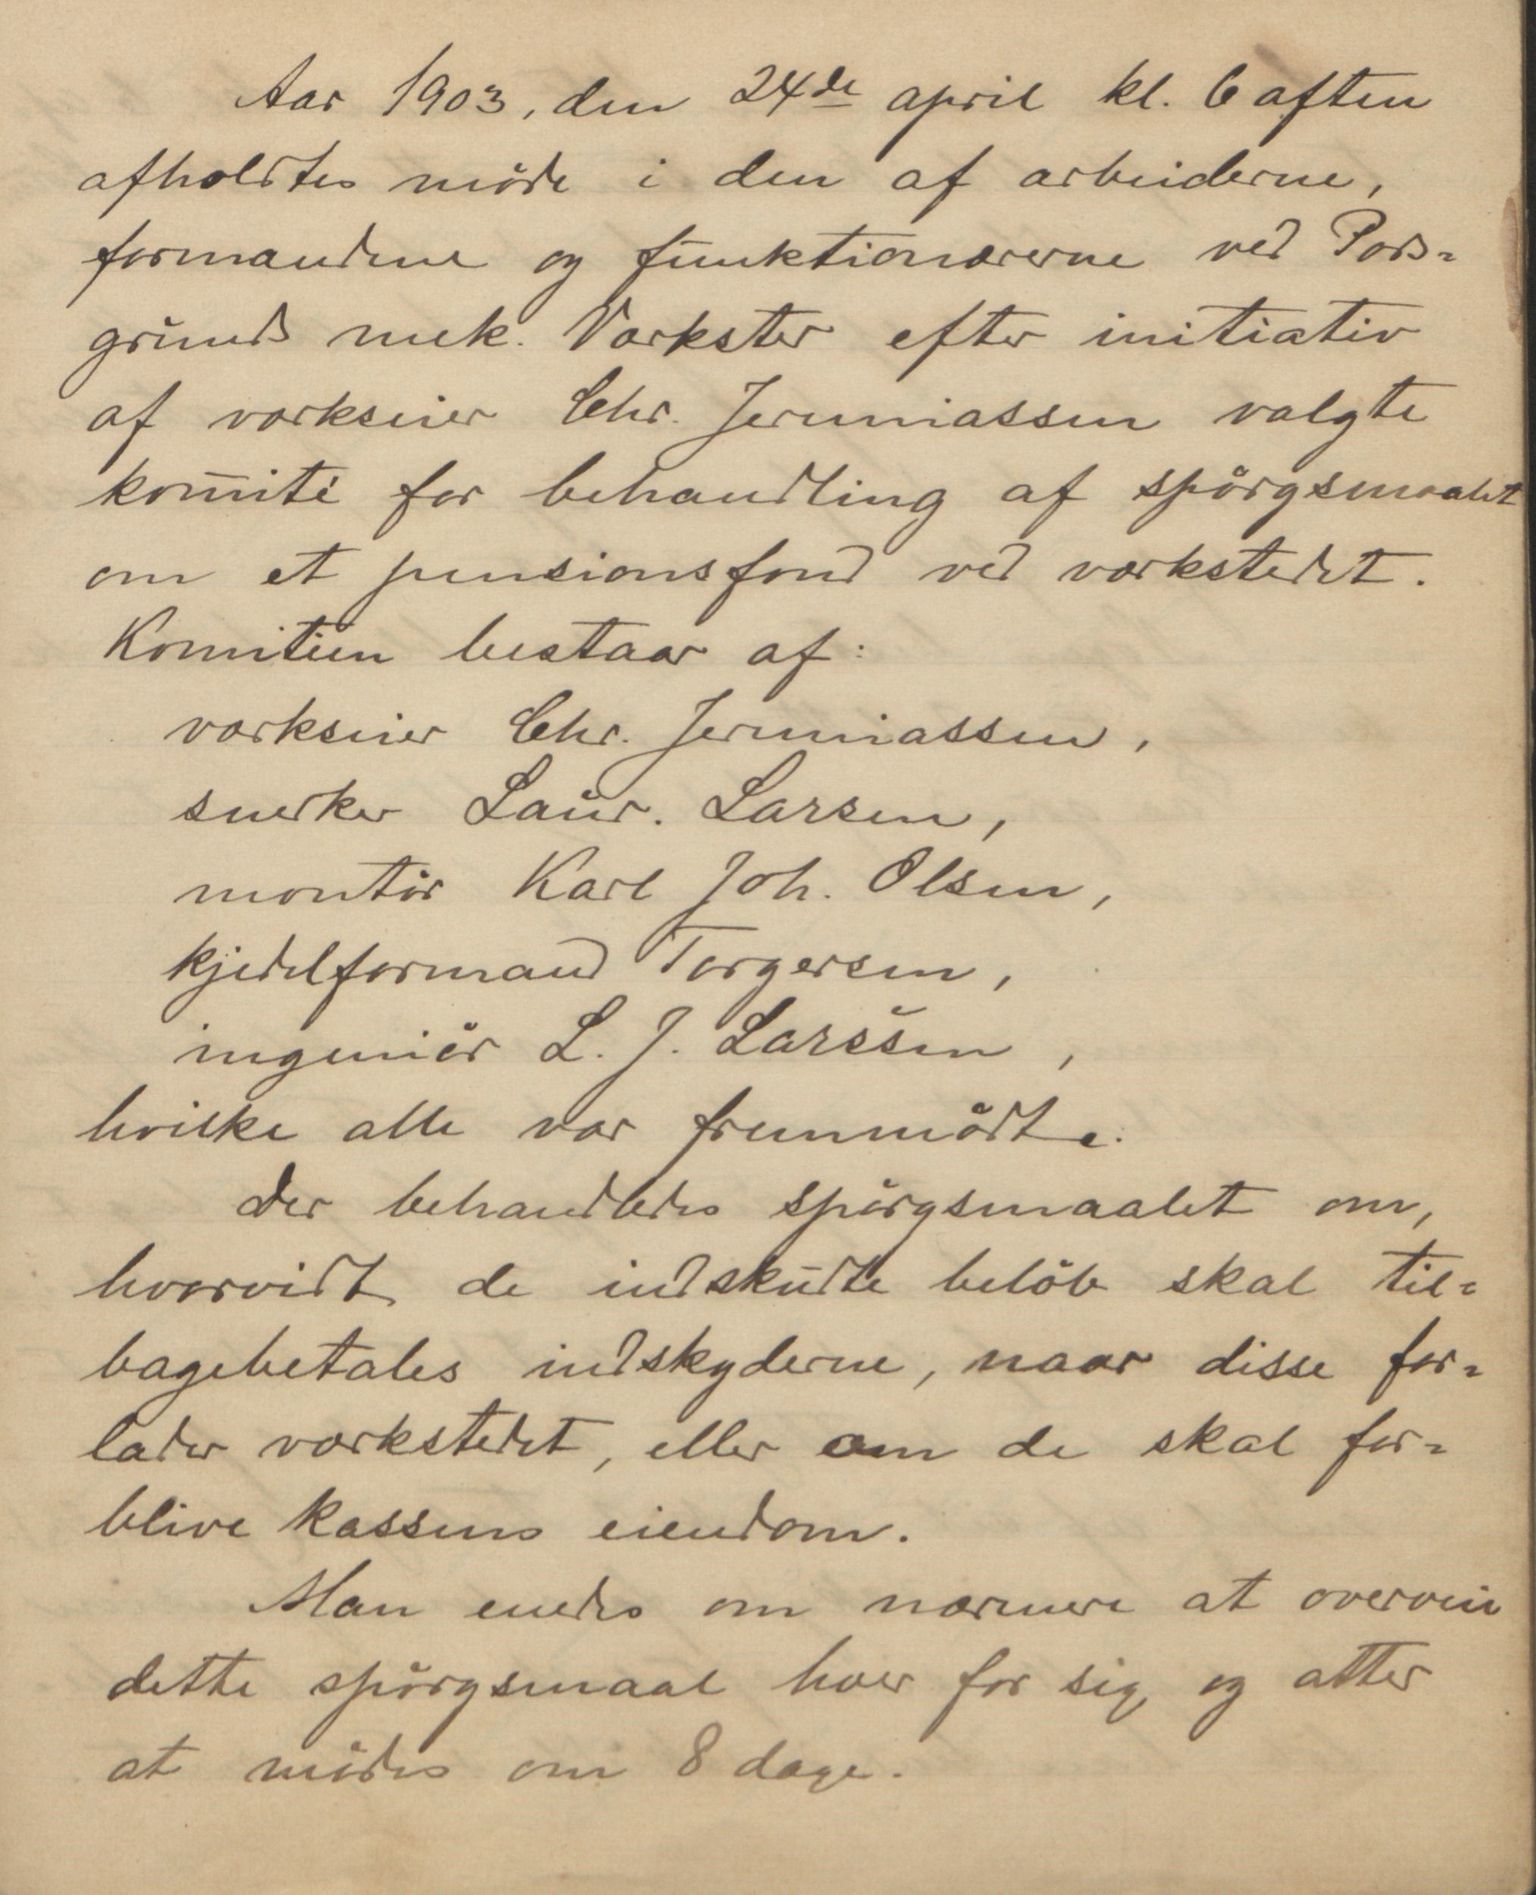 Aar 1903, den 24de april kl. 6 aften
afholdtes møde i den af arbeiderne,
formændene og funktionærerne ved Pors=
grunds mek. Værkster efter initiativ
af værkseier Chr. Jeremiassen valgte
komite for behandling af spørgsmaalet
om et pensionsfond ved værkstedet.
Komiteen bestaar af:
værkseier Chr. Jeremiassen,
snerker Laur. Larsen,
montør Karl Joh. Olsen,
kjedelformand Torgersen,
ingeniør L. J. Larssen,
hvilke alle var fremmødte.
Der behandledes spørgsmaalet om,
hvorvidt de indskudte beløb skal til=
bagebetales indskyderne, naar disse for=
lader værkstedet, eller om de skal for=
blive kassens eiendom.
Man enedes om nærmere at overveie
dette spørgsmaal hver for sig og atter
at mødes om 8 dage.